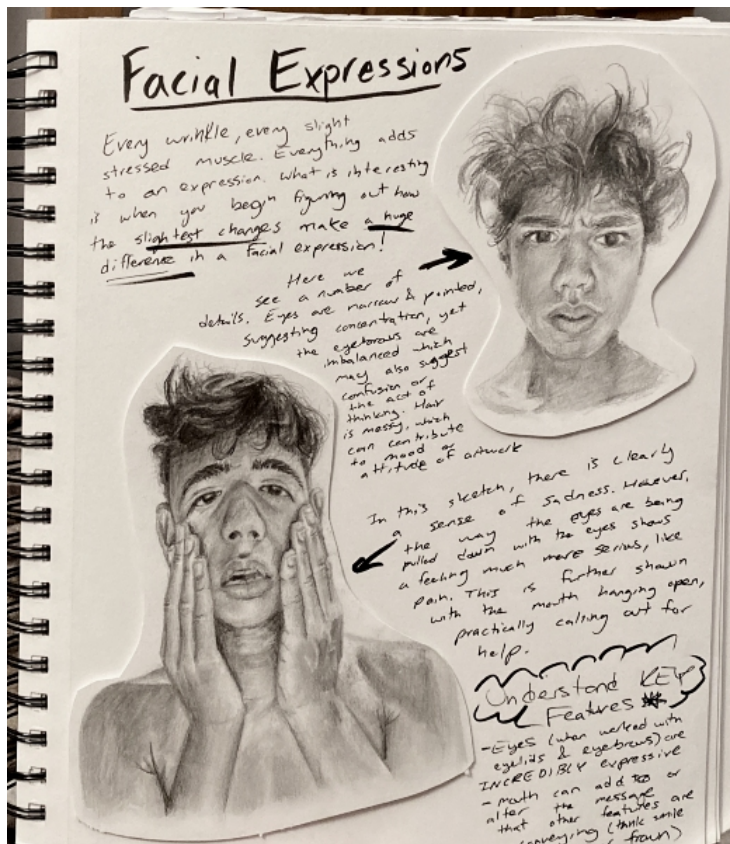 Facial Expressions
Every wrinkle, every slight
stressed muscle. Everything adds
to an expression. What is interesting
is when you begin figuring out how
the slightest changes make a huge
difference in a facial expression!
Here we
see a number of
details. Eyes are narrow & pointed,
suggesting concentration, yet
the eyebrows are
imbalanced which
may also suggest
confusion or
the act of
thinking. Hair
is messy, which
can contribute
to mood or
attitude of artwork
In this sketch, there is clearly
a sense of sadness. However,
the way the eyes are being
pulled down with the eyes shows
a feeling much more serious, like
pain. This is further shown
with the mouth hanging open,
practically calling out for
help.
Understand KEY
Features
- Eyes (when worked with
eyelids & eyebrows) are
INCREDIBLY expressive
- mouth can add to or
alter the message
that other features are
conveying (think smile
frown)